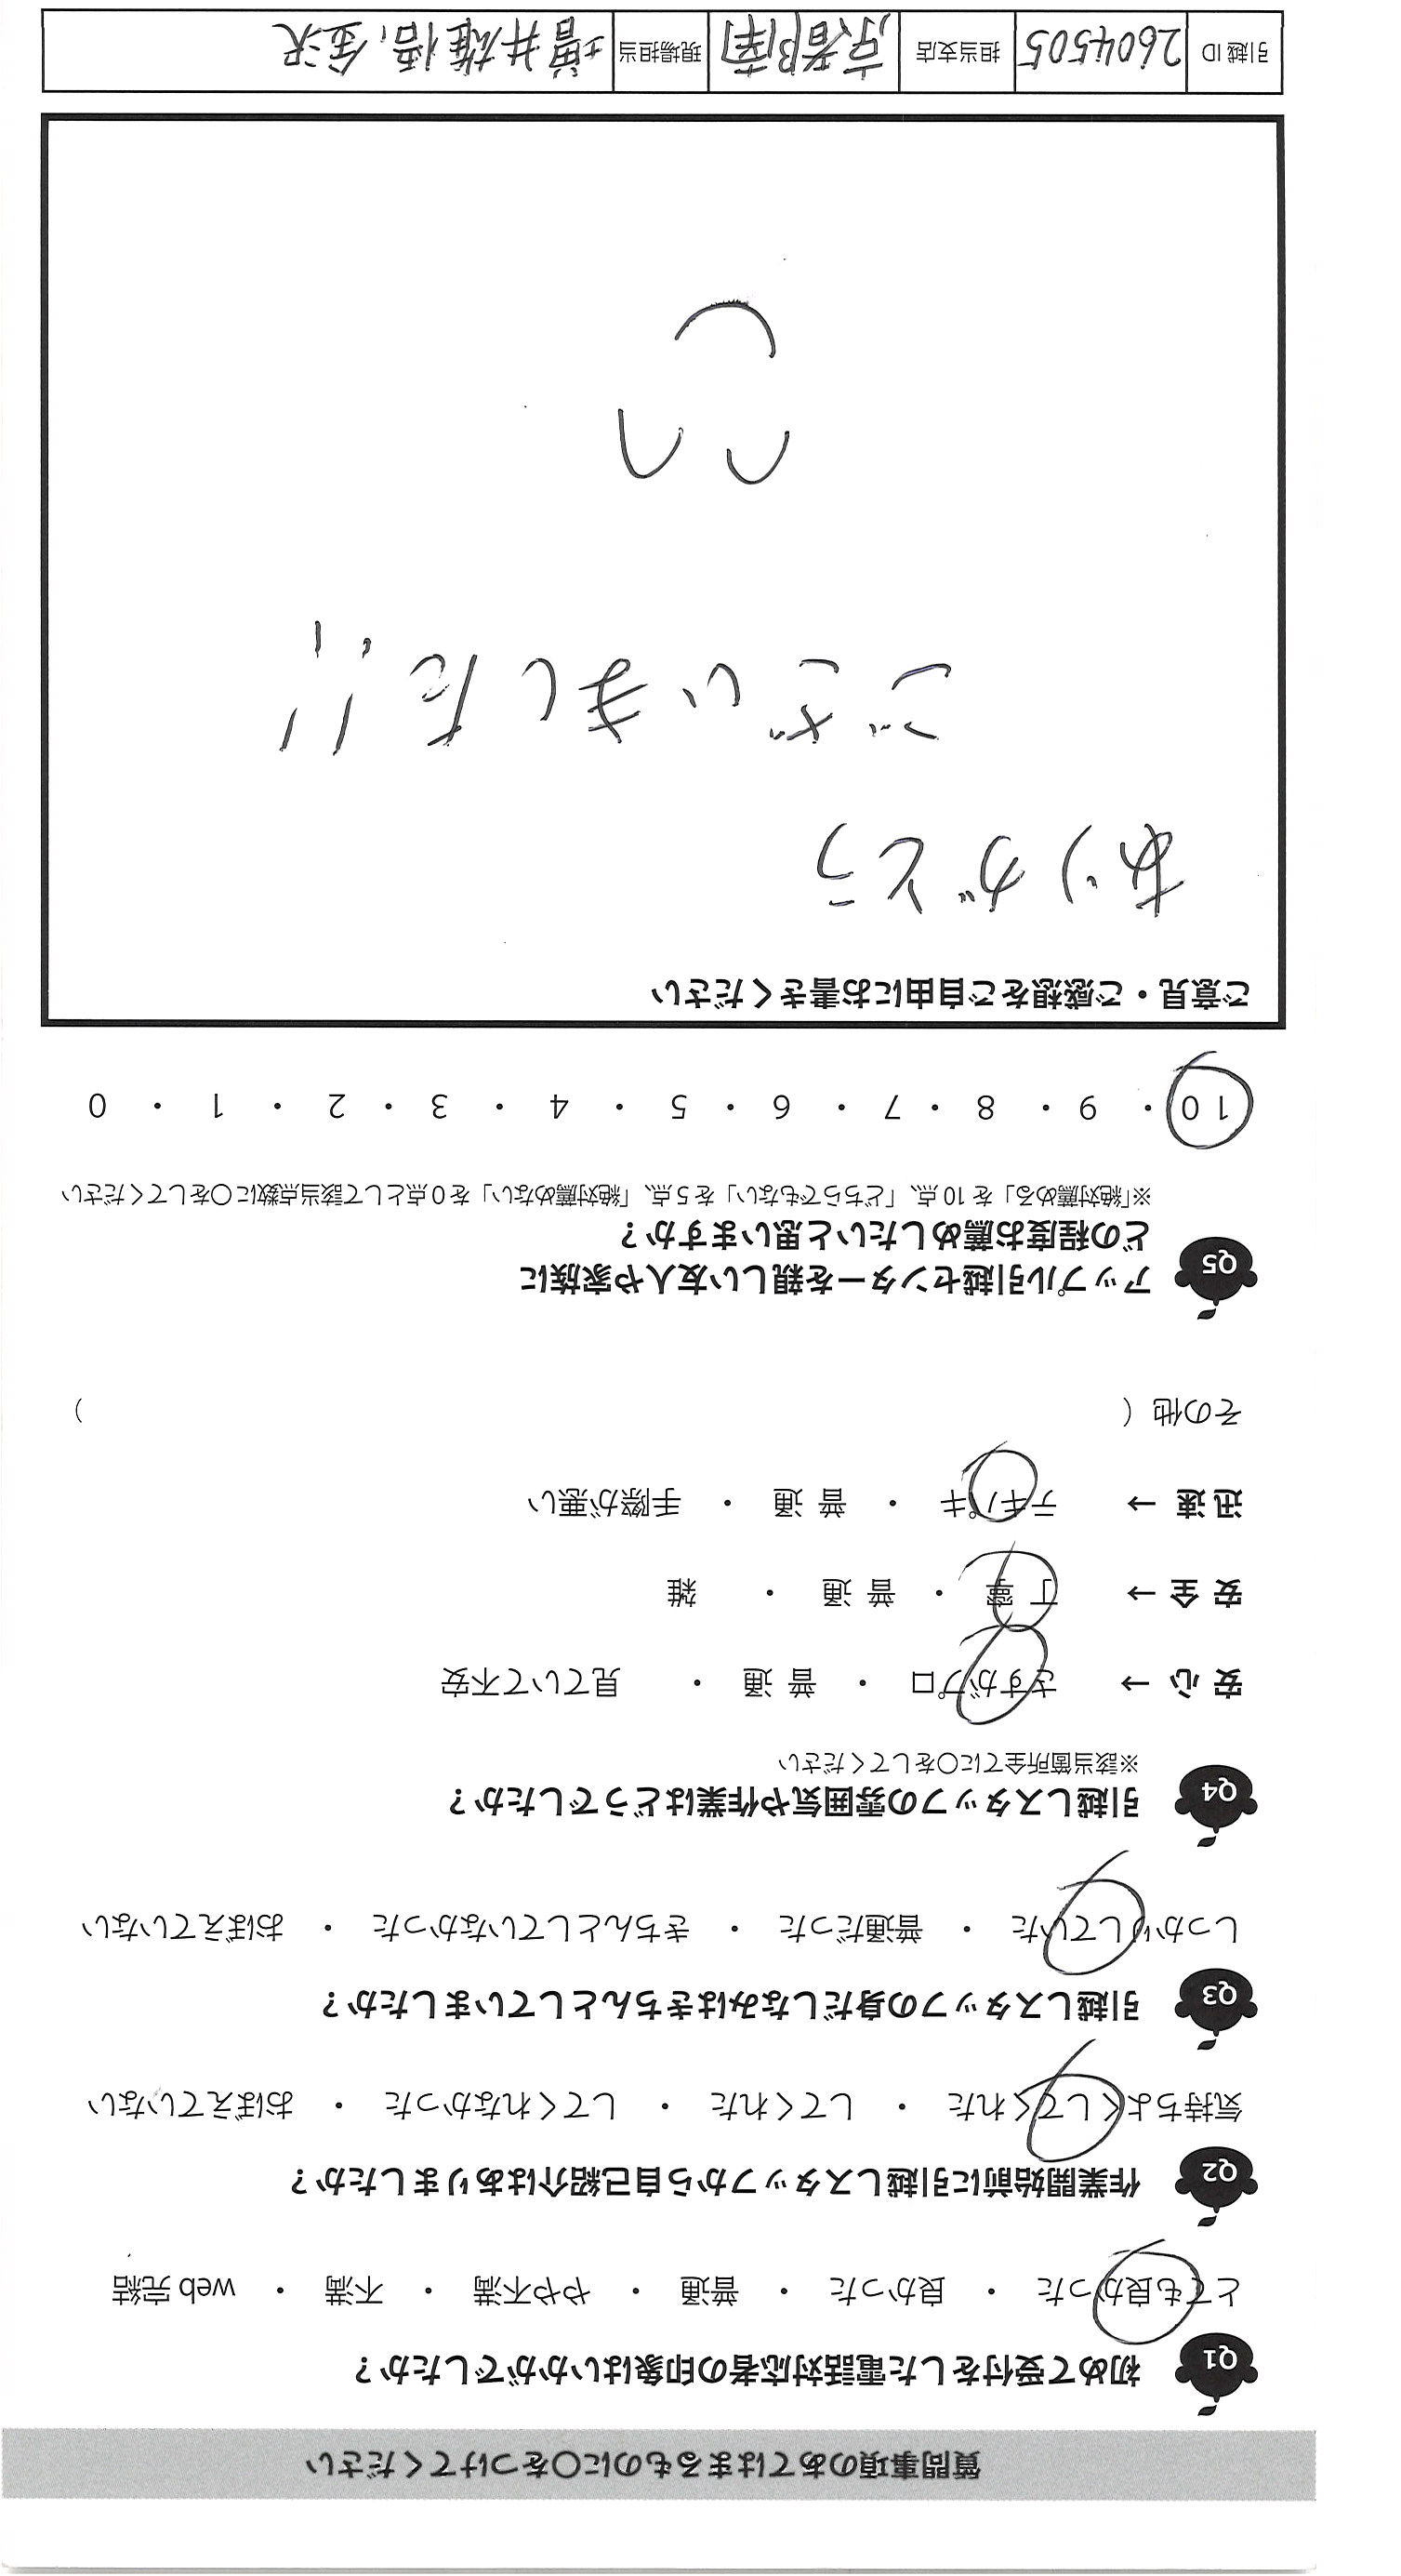 質問事項のあてはまるものに〇をつけてください
Q1 初めて受付をした電話対応者の印象はいかがでしたか？
とても良かった ・ 良かった ・ 普通 ・ やや不満 ・ 不満 ・ web 完結
Q2 作業開始前に引越しスタッフから自己紹介はありましたか？
気持ちよくしてくれた ・ してくれた ・ してくれなかった ・ おぼえていない
Q3 引越しスタッフの身だしなみはきちんとしていましたか？
しっかりしていた ・ 普通だった ・ きちんとしていなかった ・ おぼえていない
Q4 引越しスタッフの雰囲気や作業はどうでしたか？
※該当箇所全てに〇をしてください
安 心 → さすがプロ ・ 普 通 ・ 見ていて不安
安 全 → 丁 寧 ・ 普 通 ・ 雑
迅 速 → テキパキ ・ 普 通 ・ 手際が悪い
その他 （ ）
Q5 アップル引越センターを親しい友人や家族に
どの程度お薦めしたいと思いますか？
※「絶対薦める」を 10 点、「どちらでもない」を 5 点、「絶対薦めない」を 0 点として該当点数に〇をしてください
10 ・ 9 ・ 8 ・ 7 ・ 6 ・ 5 ・ 4 ・ 3 ・ 2 ・ 1 ・ 0
ご意見・ご感想をご自由にお書きください
ありがとう
ございました!!
引越 ID 2604505 担当支店 京都南 現場担当 増井雄悟, 金沢